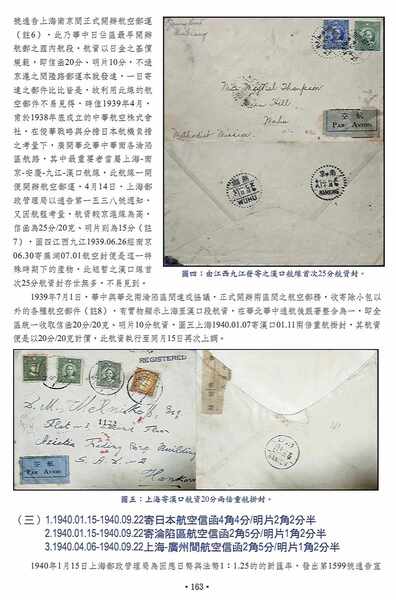 號通告上海南京間正式開辦航空郵運
（註6），此乃華中日佔區最早開辦
航郵之區內航段，航資以日金之基價
規範，即信函20分、明片10分，不過
京滬之間陸路郵運本就發達，一日寄
達之郵件比比皆是，故利用此線的航
空郵件不易見得。時值1939年4月，
前於1938年底成立的中華航空株式會
社，在復華戰時與分權日本航機負擔
之考量下，廣開華北華中華南各淪陷
區航路，其中最重要者當屬上海-南
京-安慶-九江-漢口航線，此航線一開
便開辦航空郵運。4月14日，上海郵
政管理局以通告第一五三八號通知，
又因航程考量，航資較京滬線為高，
信函為25分/20克，明片則為15分（註
7），圖四江西九江1939.06.26經南京
06.30寄蕪湖07.01航空封便是這一特
殊時期下的產物，此短暫之漢口線首
次25分航資封存世無多，不易見到。
Miss Mychel Thompson
Wuhu
Methodist Mission
空航
PAR AVION
蕪湖
WUHU
NANKING
圖四：由江西九江發寄之漢口航線首次25分航資封。
1939年7月1日，華中與華北兩淪陷區間達成協議，正式開辦兩區間之航空郵務，收寄除小包以
外的各種航空郵件（註8），有實物顯示上海至漢口段航資，在華北華中通航後跟著整合為一，即全
區統一收取信函20分/20克，明片10分航資，圖三上海1940.01.07寄漢口01.11兩倍重航掛封，其航資
便是以20分/20克計價，此航資執行至同月15日再次上調。
REGISTERED
1173
Flat-1
Asiatic Trading Corp. Building
Hankow
空航
PAR AVION
圖五：上海寄漢口航資20分兩倍重航掛封。
（三）1.1940.01.15-1940.09.22寄日本航空信函4角4分/明片2角2分半
2.1940.01.15-1940.09.22寄淪陷區航空信函2角5分/明片1角2分半
3.1940.04.06-1940.09.22上海-廣州間航空信函2角5分/明片1角2分半
1940年1月15日上海郵政管理局為因應日幣與法幣1：1.25的的新匯率，發出第1599號通告宣
•163•